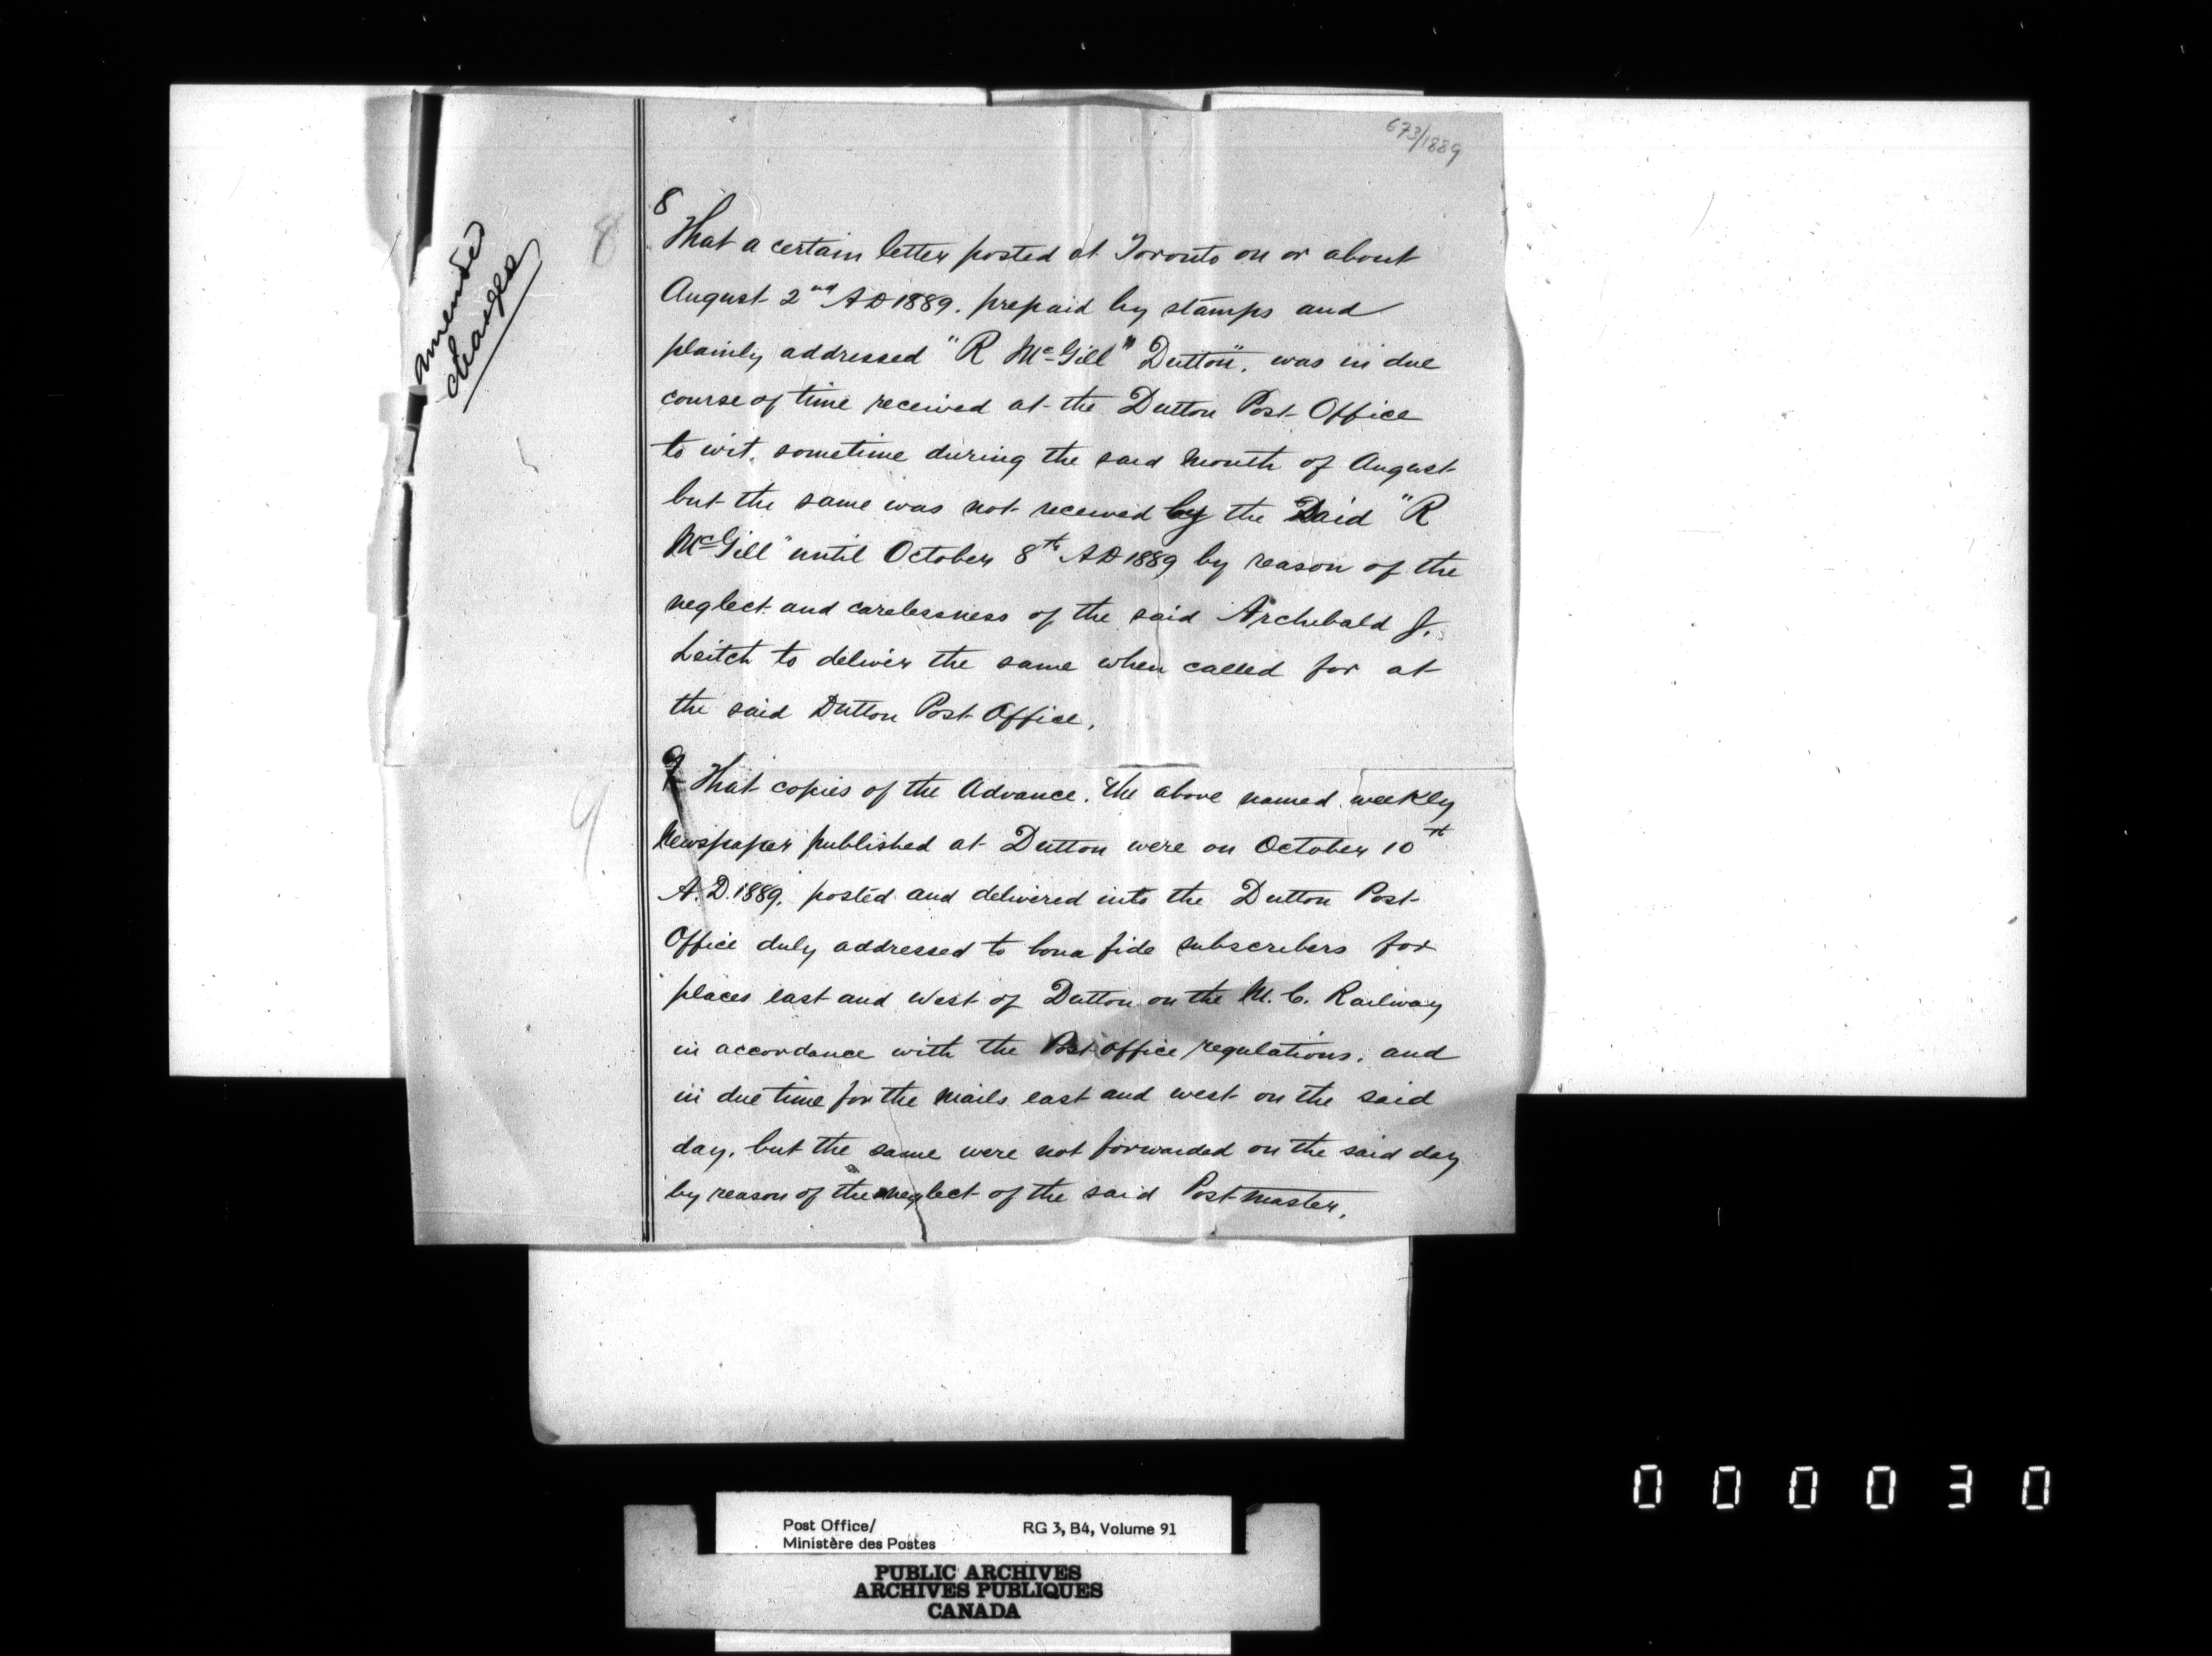 673/1889
amended
charges
8
8
That a certain letter posted at Toronto on or about
August 2nd AD 1889. prepaid by stamps and
plainly addressed "R McGill" Dutton", was in due
course of time received at the Dutton Post Office
to wit, sometime during the said month of August
but the same was not received by the said "R
McGill" until October 8th AD 1889 by reason of the
neglect and carelessness of the said Archibald J.
Leitch to deliver the same when called for at
the said Dutton Post Office.
9
9 That copies of the Advance. the above named weekly
Newspaper published at Dutton were on October 10th
A.D. 1889. posted and delivered into the Dutton Post
Office duly addressed to bona fide subscribers for
places east and west of Dutton on the M. C. Railway
in accordance with the Post office regulations. and
in due time for the mails east and west on the said
day, but the same were not forwarded on the said day
by reason of the neglect of the said Postmaster.
000030
Post Office/ RG 3, B4, Volume 91
Ministère des Postes
PUBLIC ARCHIVES
ARCHIVES PUBLIQUES
CANADA